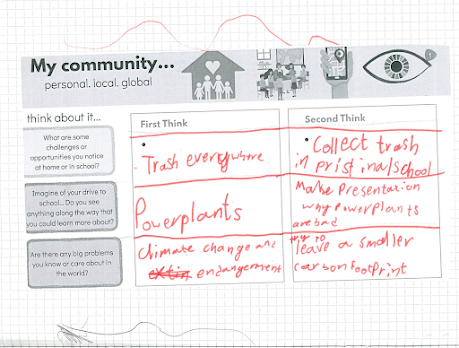 My community...
personal. local. global
think about it...
First Think
Second Think
What are some
challenges or
opportunities you notice
at home or in school?
• Trash everywhere
• Collect trash
in pristina/school
Imagine of your drive to
school... Do you see
anything along the way that
you could learn more about?
Powerplants
Make Presentation
why powerplants
are bad
Are there any big problems
you know or care about in
the world?
Climate change and
endangerment
try to
leave a smaller
carbon footprint